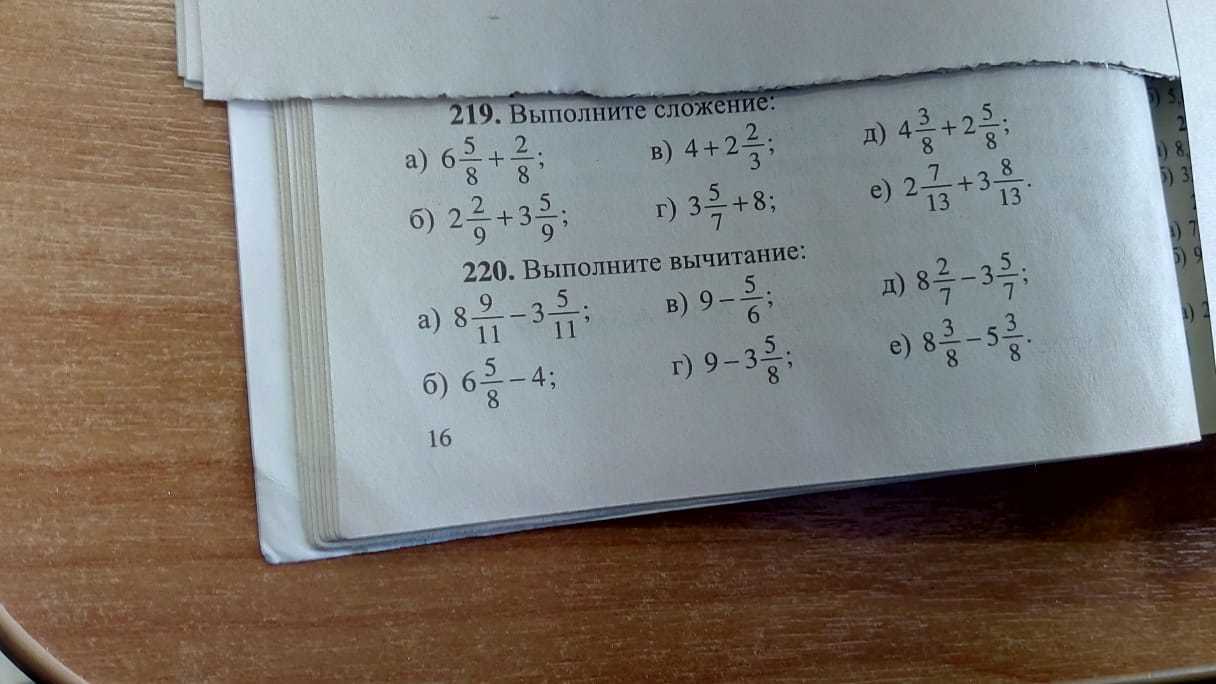 219. Выполните сложение:
а) 6 5/8 + 2/8; в) 4 + 2 2/3; д) 4 3/8 + 2 5/8;
б) 2 2/9 + 3 5/9; г) 3 5/7 + 8; е) 2 7/13 + 3 8/13.
220. Выполните вычитание:
а) 8 9/11 − 3 5/11; в) 9 − 5/6; д) 8 2/7 − 3 5/7;
б) 6 5/8 − 4; г) 9 − 3 5/8; е) 8 3/8 − 5 3/8.
16